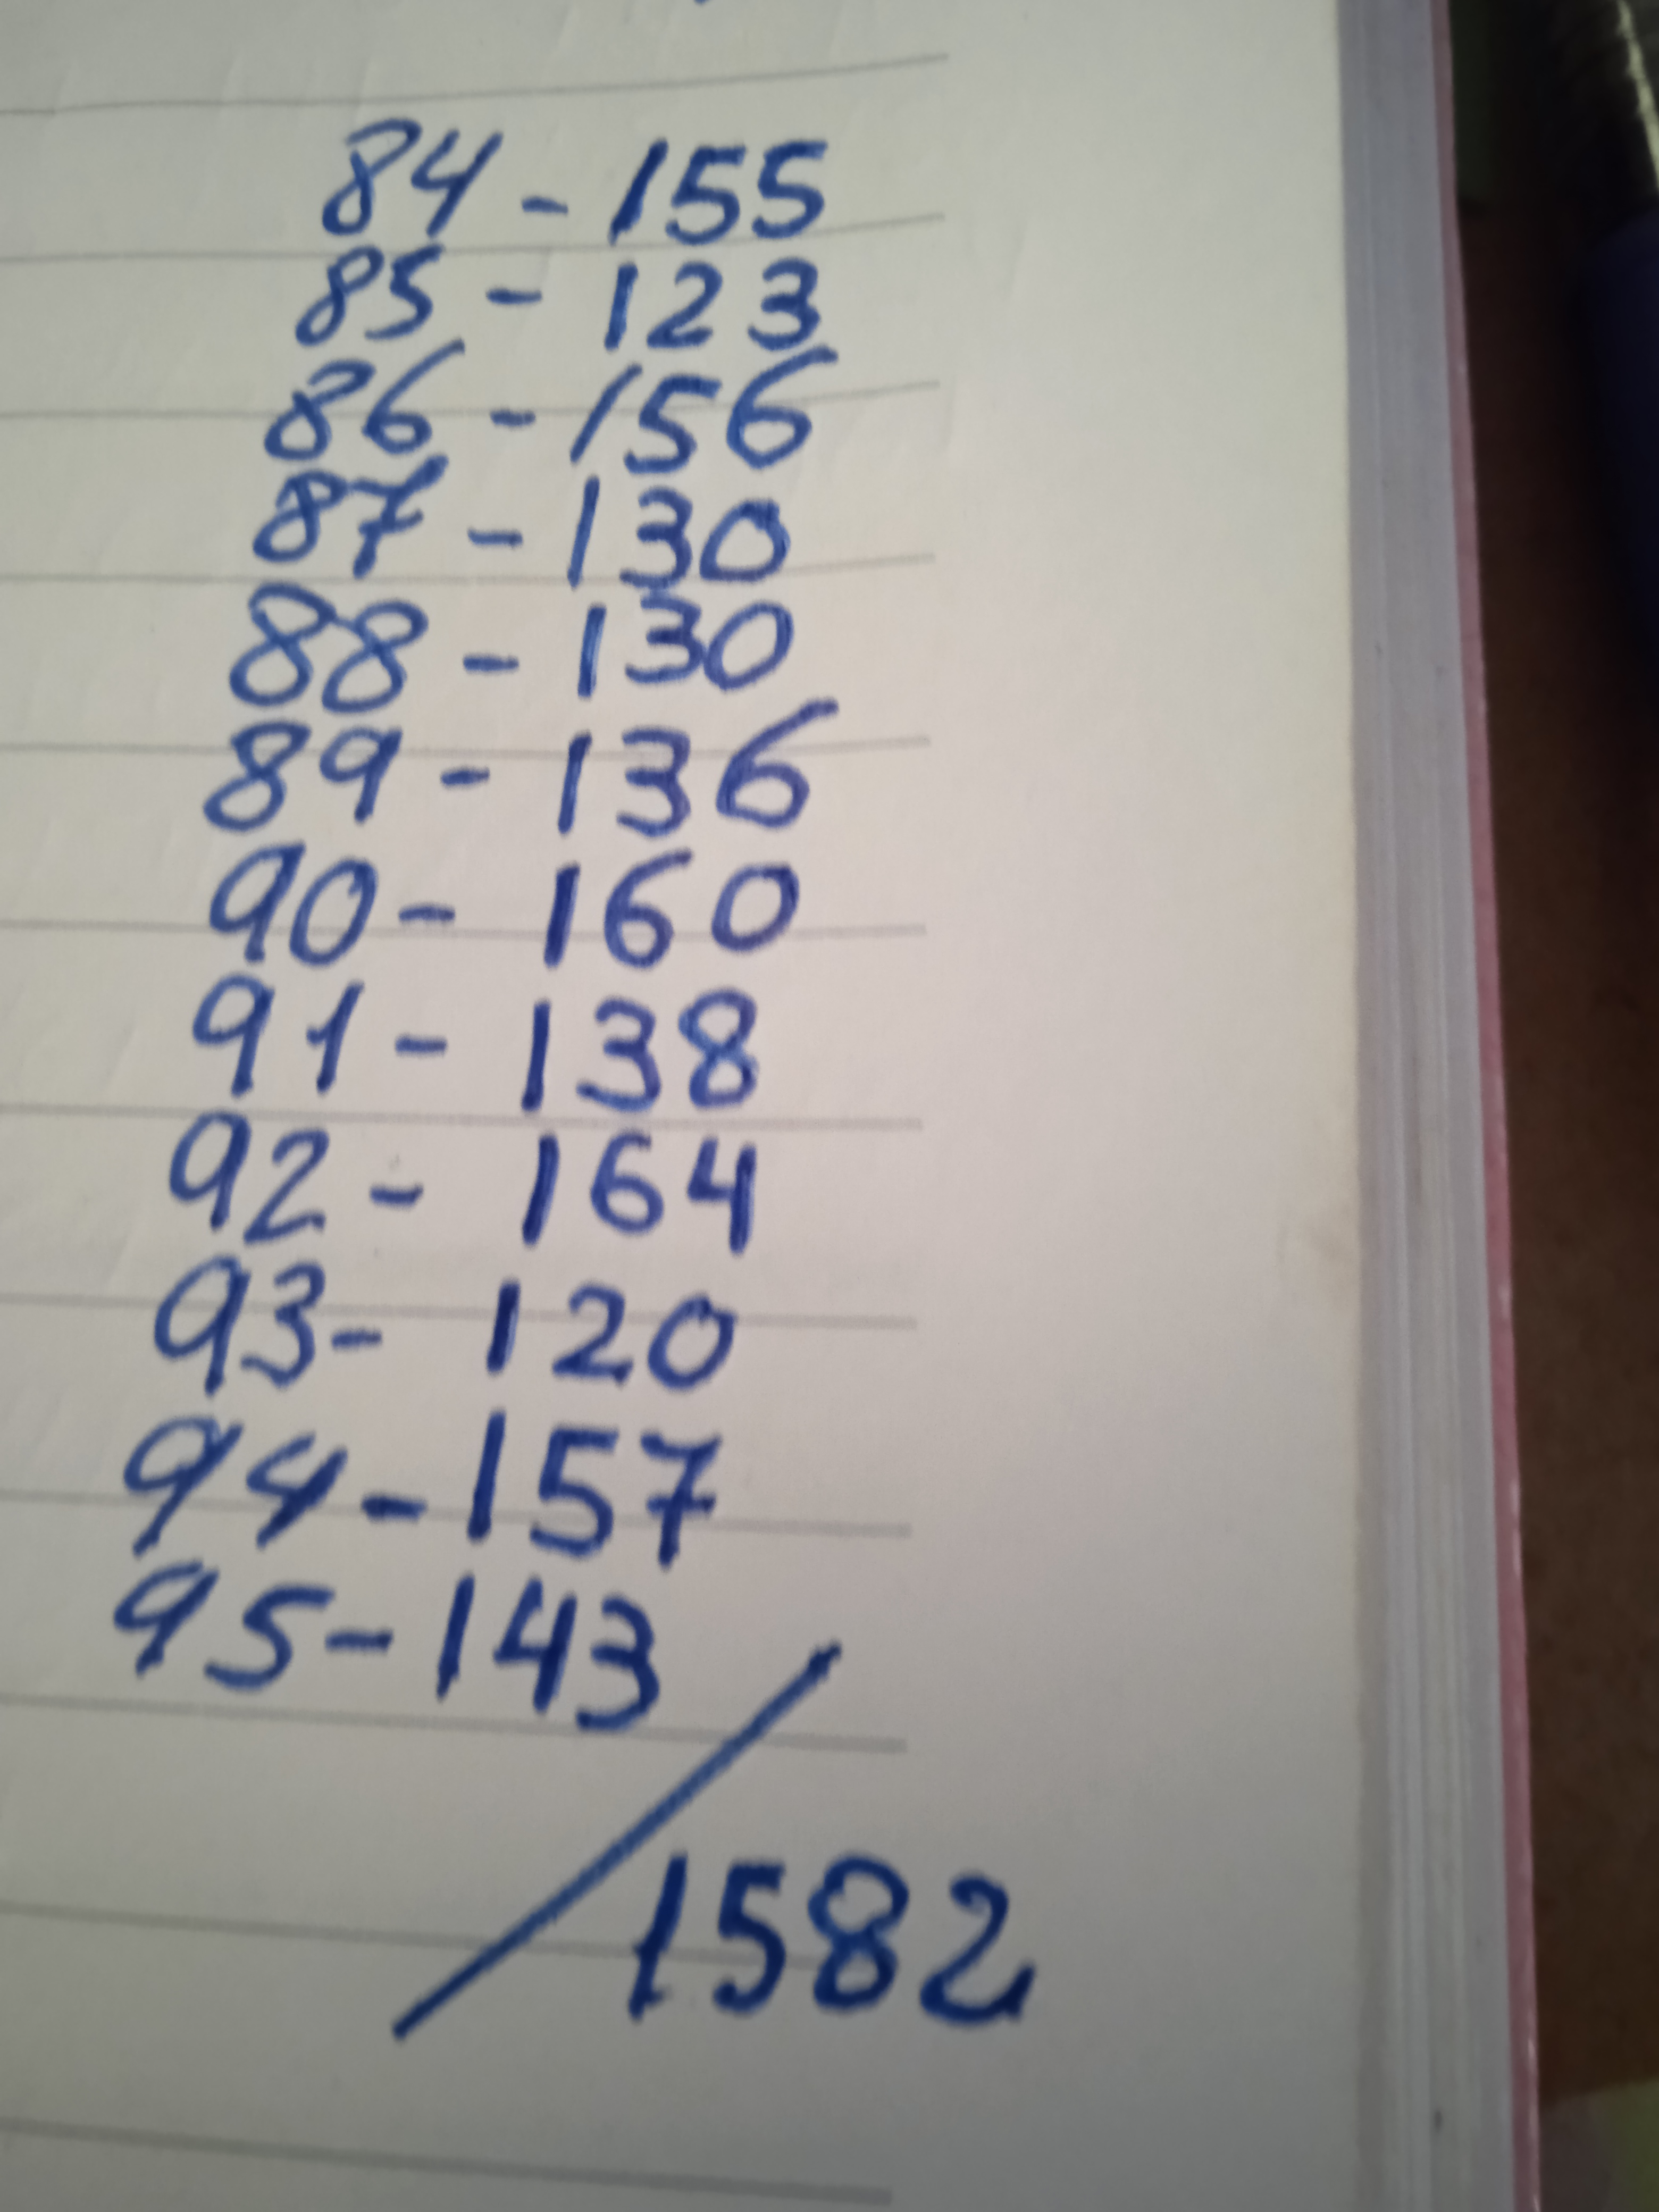 84 - 155
85 - 123
86 - 156
87 - 130
88 - 130
89 - 136
90 - 160
91 - 138
92 - 164
93 - 120
94 - 157
95 - 143
/1582